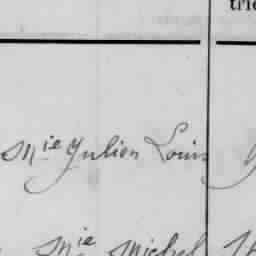 trie
Mie Julien Louis
Mie Michel